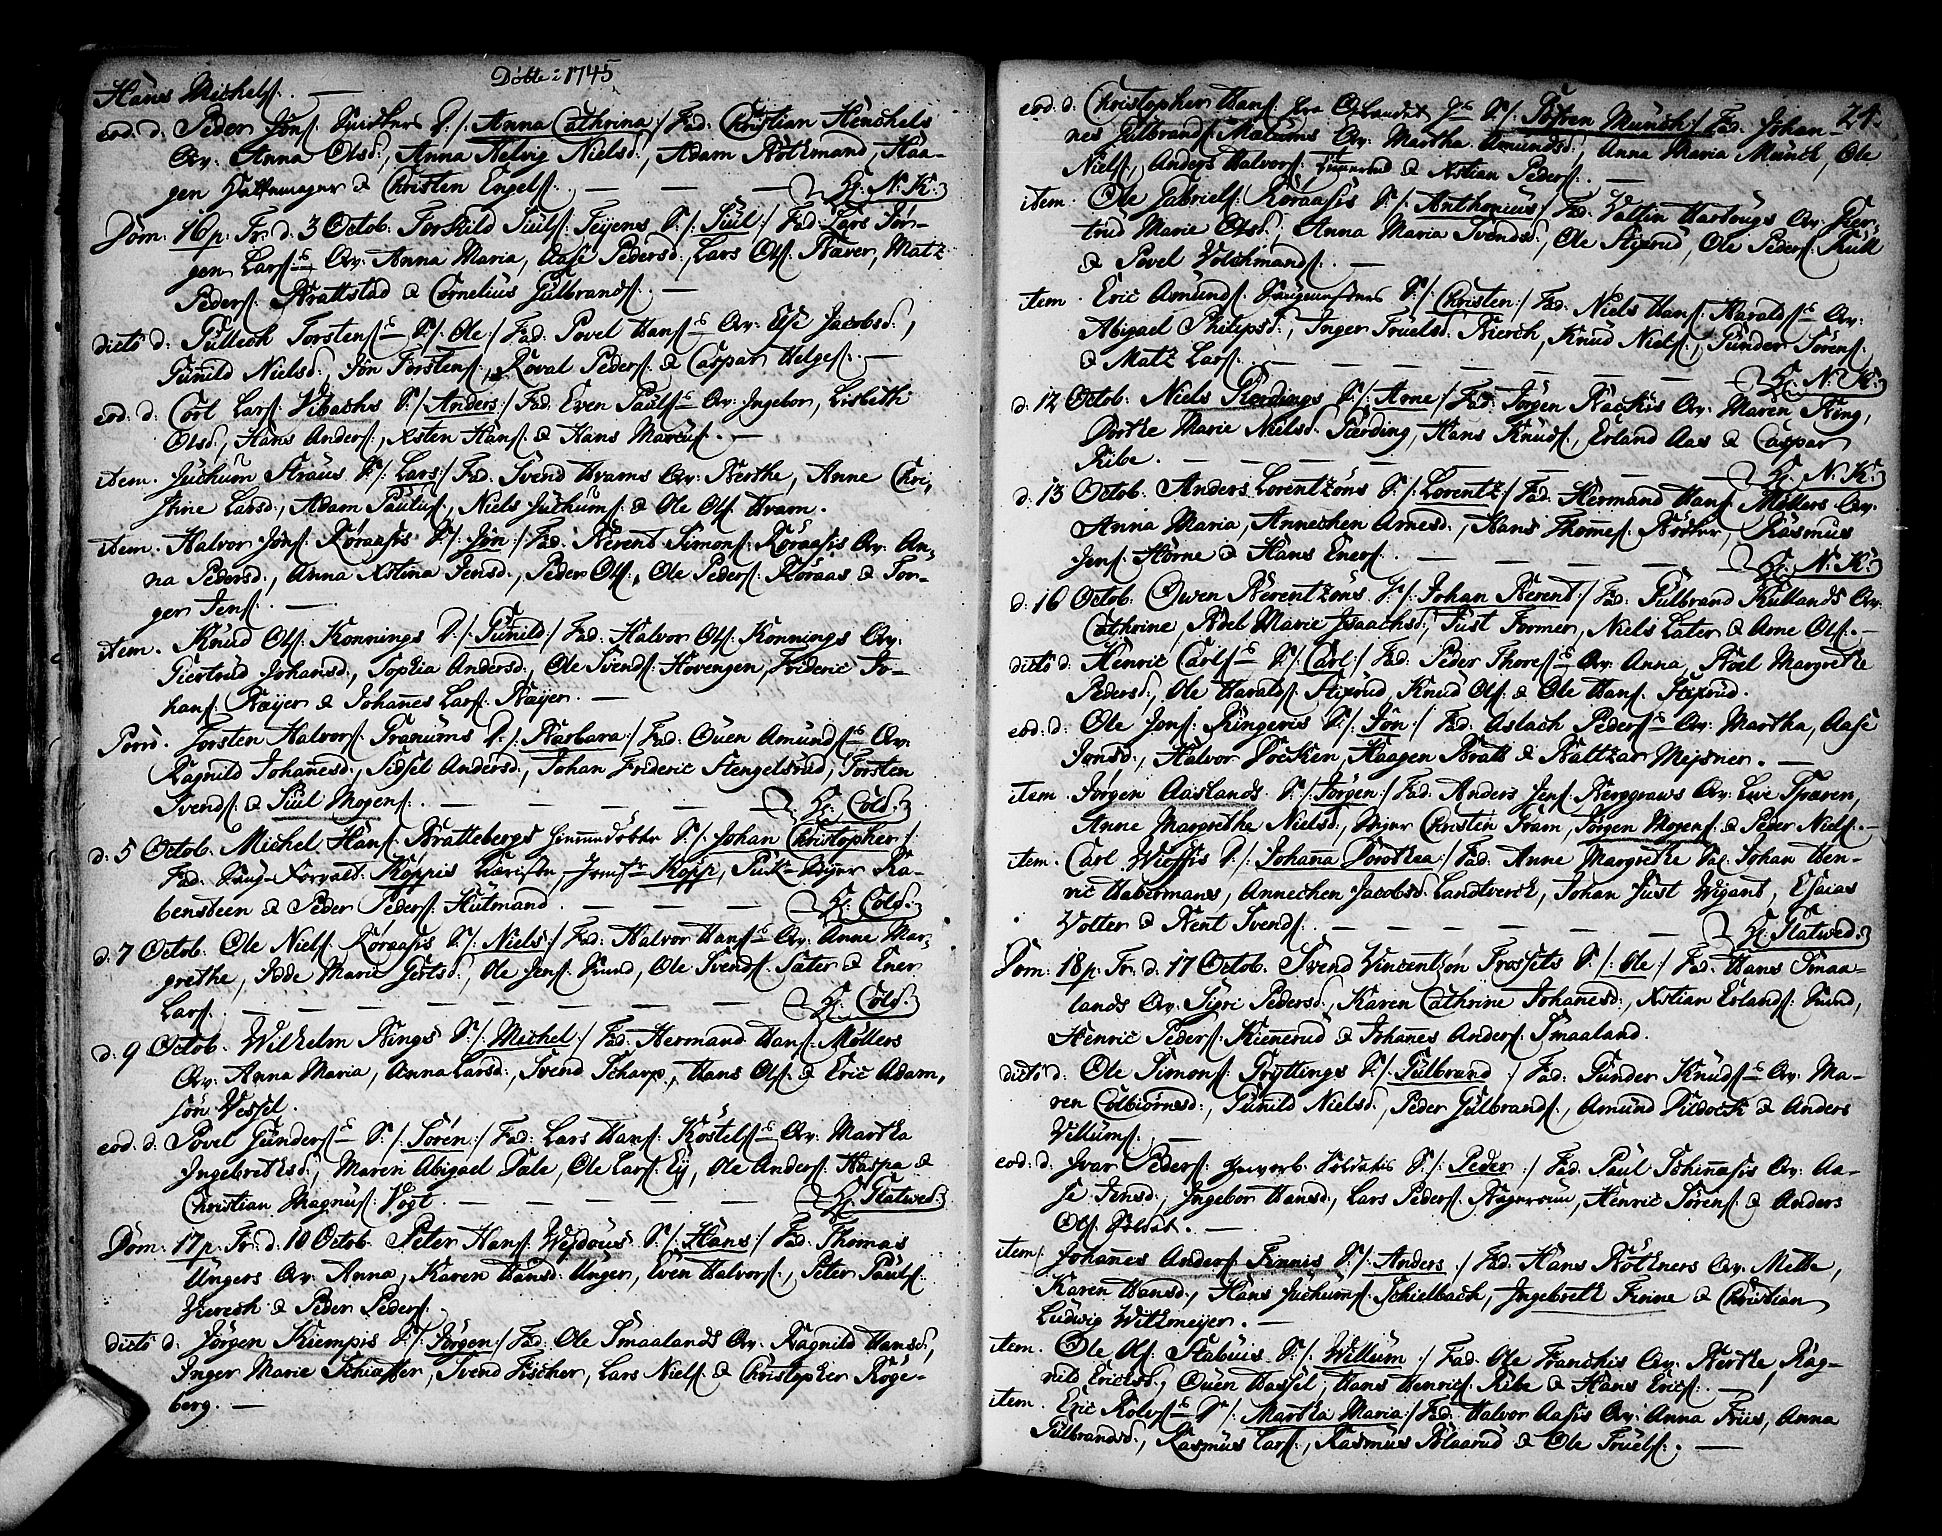 Döbte: 1745
Hans Michels: —
eod. d. Peder Jöns: D/: Anna Cathrina :/ Fad: Christian Henchels
Qv: Anna Olsd:, Anna Helvig Nielsd:, Adam Röthmand, Haa-
gen Hattemager & Christen Engels: — — — H: N: K:
Dom: 16 p: Tr: d: 3 Octob. Torskild Juuls: Teijens S/: Juul :/ Fad: Lars Jör-
gen Lars: Qv: Anna Maria, Aase Pedersd:, Lars Ols: Næver, Matz
Peders: Brattstad & Cornelius Gulbrands: —
dicto d: Gullech Torstens: S/: Ole :/ Fad: Povel Hans: Qv: Else Jacobsd:,
Gunild Nielsd:, Jön Torstens:, Roval Peders: & Caspar Helges: —
eod. d: Carl Lars: Vibachs S/: Anders :/ Fad: Even Pauls: Qv: Ingebor, Lisbeth
Olsd:, Hans Anders:, Axsten Hans: & Hans Marcus: —
item. Juchum Straus S/: Lars :/ Fad: Svend Hvams Qv: Berthe, Anne Chri,
stine Larsd:, Adam Paulus:, Niels Juchums: & Ole Ols: Hvam.
item. Halvor Jöns: Röraasis S/: Jön :/ Fad: Berent Simons: Röraasis Qv: An,
na Pedersd:, Anna Xstina Jensd:, Peder Ols:, Ole Peders: Röraas & Jör-
gen Jens: —
item. Knud Ols: Konnings D/: Gunild :/ Fad: Halvor Ols: Konnings Qv:
Giertrud Johansd:, Sophia Andersd:, Ole Svends: Hovengen, Frideric Jo-
hans: Bæyer & Johannes Lars: Bæyer. —
Torsten Halvors: Tranums D/: Barbara :/ Fad: Ouen Amunds: Qv:
Ragnild Johannesd:, Sidsel Andersd:, Johan Frideric Stengelsrud, Torsten
Svends: & Juul Mogens: — — — — H: Cold:
d: 5 Octob. Michel Hans: Brattebergs S/: Johan Christopher :/
Fad: Köppis Köpp,
bensteen & Peder Peders: Hütmand — — — H: Cold:
d: 7 Octob. Ole Niels: Röraasis S/: Niels :/ Fad: Halvor Hans: Qv: Anne Mar,
grethe, Marie Götsd:, Ole Jens: Sund, Ole Svends: Sater & Ener
Lars: — — — — H: Cold:
d: 9 Octob. Wilhelm Kings S/: Michel :/ Fad: Hermand Hans: Möllers
Qv: Anna Maria, Anna Larsd:, Svend Scharp, Hans Ols: & Eric Adam,
sön Vessel.
eod. d: Povel Gunders: S/: Sören :/ Fad: Lars Hans: Köstels: Qv: Martha
Ingebrethsd:, Maren Abigael Dale, Ole Lars: Eij, Ole Anders: Haspa &
Christian Magnus: Vogt. — — — H: Statwed:
Dom: 17 p: Tr: d: 10 Octob. Peter Hans: Weydous S/: Hans :/ Fad: Thomas
Ungers Qv: Anna, Karen Hansd: Unger, Even Halvors:, Peter Pauls:
Vierech & Peder Peders:
dicto d: Jörgen Kiempis S/: Jörgen :/ Fad: Ole Smaalands Qv: Ragnild Hansd:,
Inger Marie Schiaffer, Svend Fischer, Lars Niels: & Christopher Röge-
berg. —
24.
eod. d: Christopher Hans: S/: Munch :/ Fad: Johan-
nes Gulbrands: Qv: Martha Amundsd:, Anna Maria Munch, Ole
Niels:, Anders Halvors: & Xstian Peders: —
item. Ole Gabriels: Röraasis S/: Anthonius :/ Fad: Valtin Hartwigs Qv: Gier-
trud Marie Olsd:, Anna Maria Svendsd:, Ole Stixrud, Ole Peders: Kull
& Povel Volchmands: —
item. Eric Amunds: S/: Christen :/ Fad: Niels Hans: Haralds: Qv:
Abigael Philipsd:, Inger Truelsd: Bierch, Knud Niels:, Gunder Sörens:
& Matz Lars: — — — — H: N: K:
d: 12 Octob. Niels Færdings S/: Arne :/ Fad: Jörgen Backus Qv: Maren King,
Dorthe Marie Nielsd: Færding, Hans Knuds:, Erland Aas & Caspar
Ribe. — — — — H: N: K:
d: 13 Octob. Anders Lorentzöns S/: Lorentz :/ Fad: Hermand Hans: Möllers Qv:
Anna Maria, Annechen Arnesd:, Hans Thomes: Bödker, Rasmus
Jens: Hörne & Hans Eners: — — — H: N: K:
d: 16 Octob: Owen Berentzöns S/: Johan Berent :/ Fad: Gulbrand Kullands Qv:
Cathrine, Adel Marie Isaachsd:, Just Former, Niels Sater & Arne Ols: —
dicto d: Henric Carls: S/: Carl :/ Fad: Peder Thores: Qv: Anna, Boel Margrethe
Pedersd:, Ole Haralds: Stixrud, Knud Ols: & Ole Hans: Stixrud.
eod: d: Ole Jens: Ringeris S/: Jön :/ Fad: Aslach Peders: Qv: Martha, Aase
Jonsd:, Halvor Docken, Haagen Bratt & Baltzar Mejsner. —
item Jörgen Aaslands S/: Jörgen :/ Fad: Anders Jens: Berggraws Qv: Live Spæren,
Anne Margrethe Nielsd:, Christen Gram, Jörgen Mogens: & Peder Niels: —
item. Carl Wioffis D/: Johanna Dorothea :/ Fad: Anne Margrethe Sal: Johan Hen-
ric Habermans, Annechen Jacobsd: Landtverck, Johan Just Wigant, Esaias
Votter & Bent Svends: — — — H: Statwed:
Dom: 18 p: Tr: d: 17 Octob. Svend Vincentzön Fossets S/: Ole :/ Fad: Hans Smaa-
lands Qv: Sigri Pedersd:, Karen Cathrine Johannesd:, Xstian Erlands: Sund,
Henric Peders: Kiennerud & Johannes Anders: Smaaland.
dicto d: Ole Simons: Tryttings S/: Gulbrand :/ Fad: Gunder Knuds: Qv: Ma-
ren Colbiörnsd:, Gunild Nielsd:, Peder Gulbrands:, Amund Vildock & Anders
Villums: —
eod: d: Ivar Peders: Soldatis S/: Peder :/ Fad: Paul Schinnasis Qv: Aa-
se Jensd:, Ingebor Hansd:, Lars Peders: Henric Sörens: & Anders
Ols: Soldat. —
item/ Johannes Anders: Finnis S/: Anders :/ Fad: Hans Böthners Qv: Mette,
Karen Hansd:, Hans Juchums: Schielbach, Ingebreth Finne & Christian
Ludwig Withmeijer. —
item. Ole Ols: Stabuis S/: Willum :/ Fad: Ole Franchis Qv: Berthe, Rag-
nild Ericsd:, Ouen Hassel, Hans Henrics: Ribe & Hans Erics: —
item. Eric Rolefs: D/: Martha Maria :/ Fad: Halvor Aasis Qv: Anna Friis, Anna
Gulbrandsd:, Rasmus Lars:, Rasmus Blaarud & Ole Truels: —